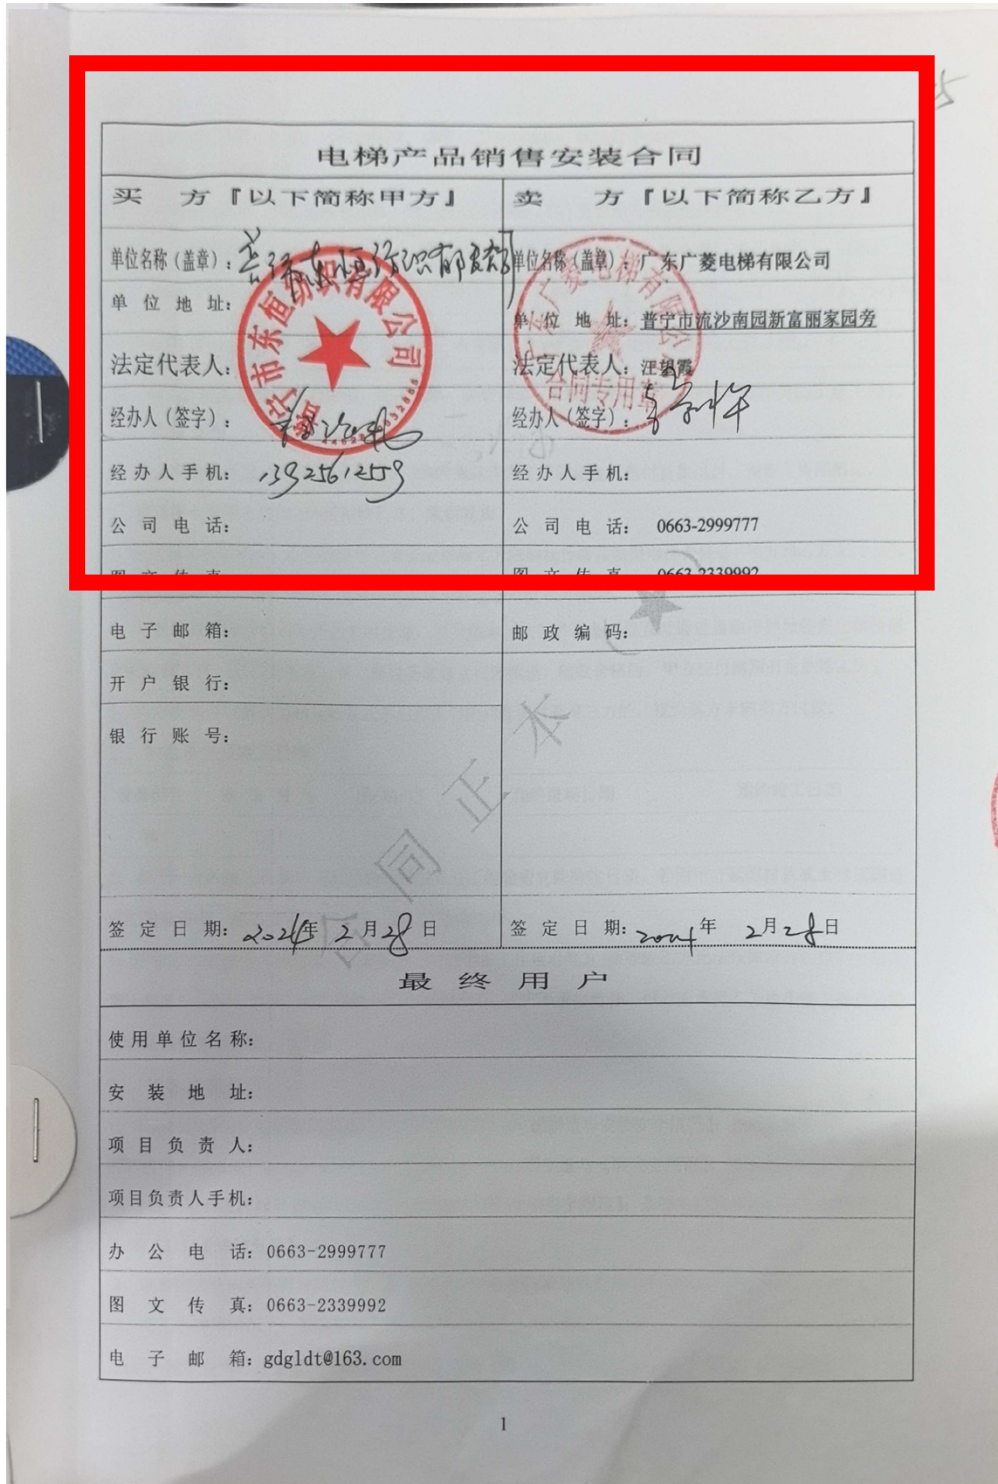 电梯产品销售安装合同
买 方『以下简称甲方』 卖 方『以下简称乙方』
单位名称（盖章）： 单位名称（盖章）：广东广菱电梯有限公司
单 位 地 址： 单 位 地 址：普宁市流沙南园新富丽家园旁
普宁市东恒纺织有限公司
广东广菱电梯有限公司
合同专用章
法定代表人： 法定代表人：汪望霞
经办人（签字）： 经办人（签字）：
经办人手机：13925612559 经办人手机：
公 司 电 话： 公 司 电 话： 0663-2999777
图 文 传 真 图 文 传 真： 0663-2339992
电 子 邮 箱： 邮 政 编 码：
开 户 银 行：
银 行 账 号：
合同正本
签 定 日 期：2024年 2月28日 签 定 日 期：2024年 2月28日
最 终 用 户
使用单位名称：
安 装 地 址：
项 目 负 责 人：
项目负责人手机：
办 公 电 话：0663-2999777
图 文 传 真：0663-2339992
电 子 邮 箱：gdgldt@163.com
1